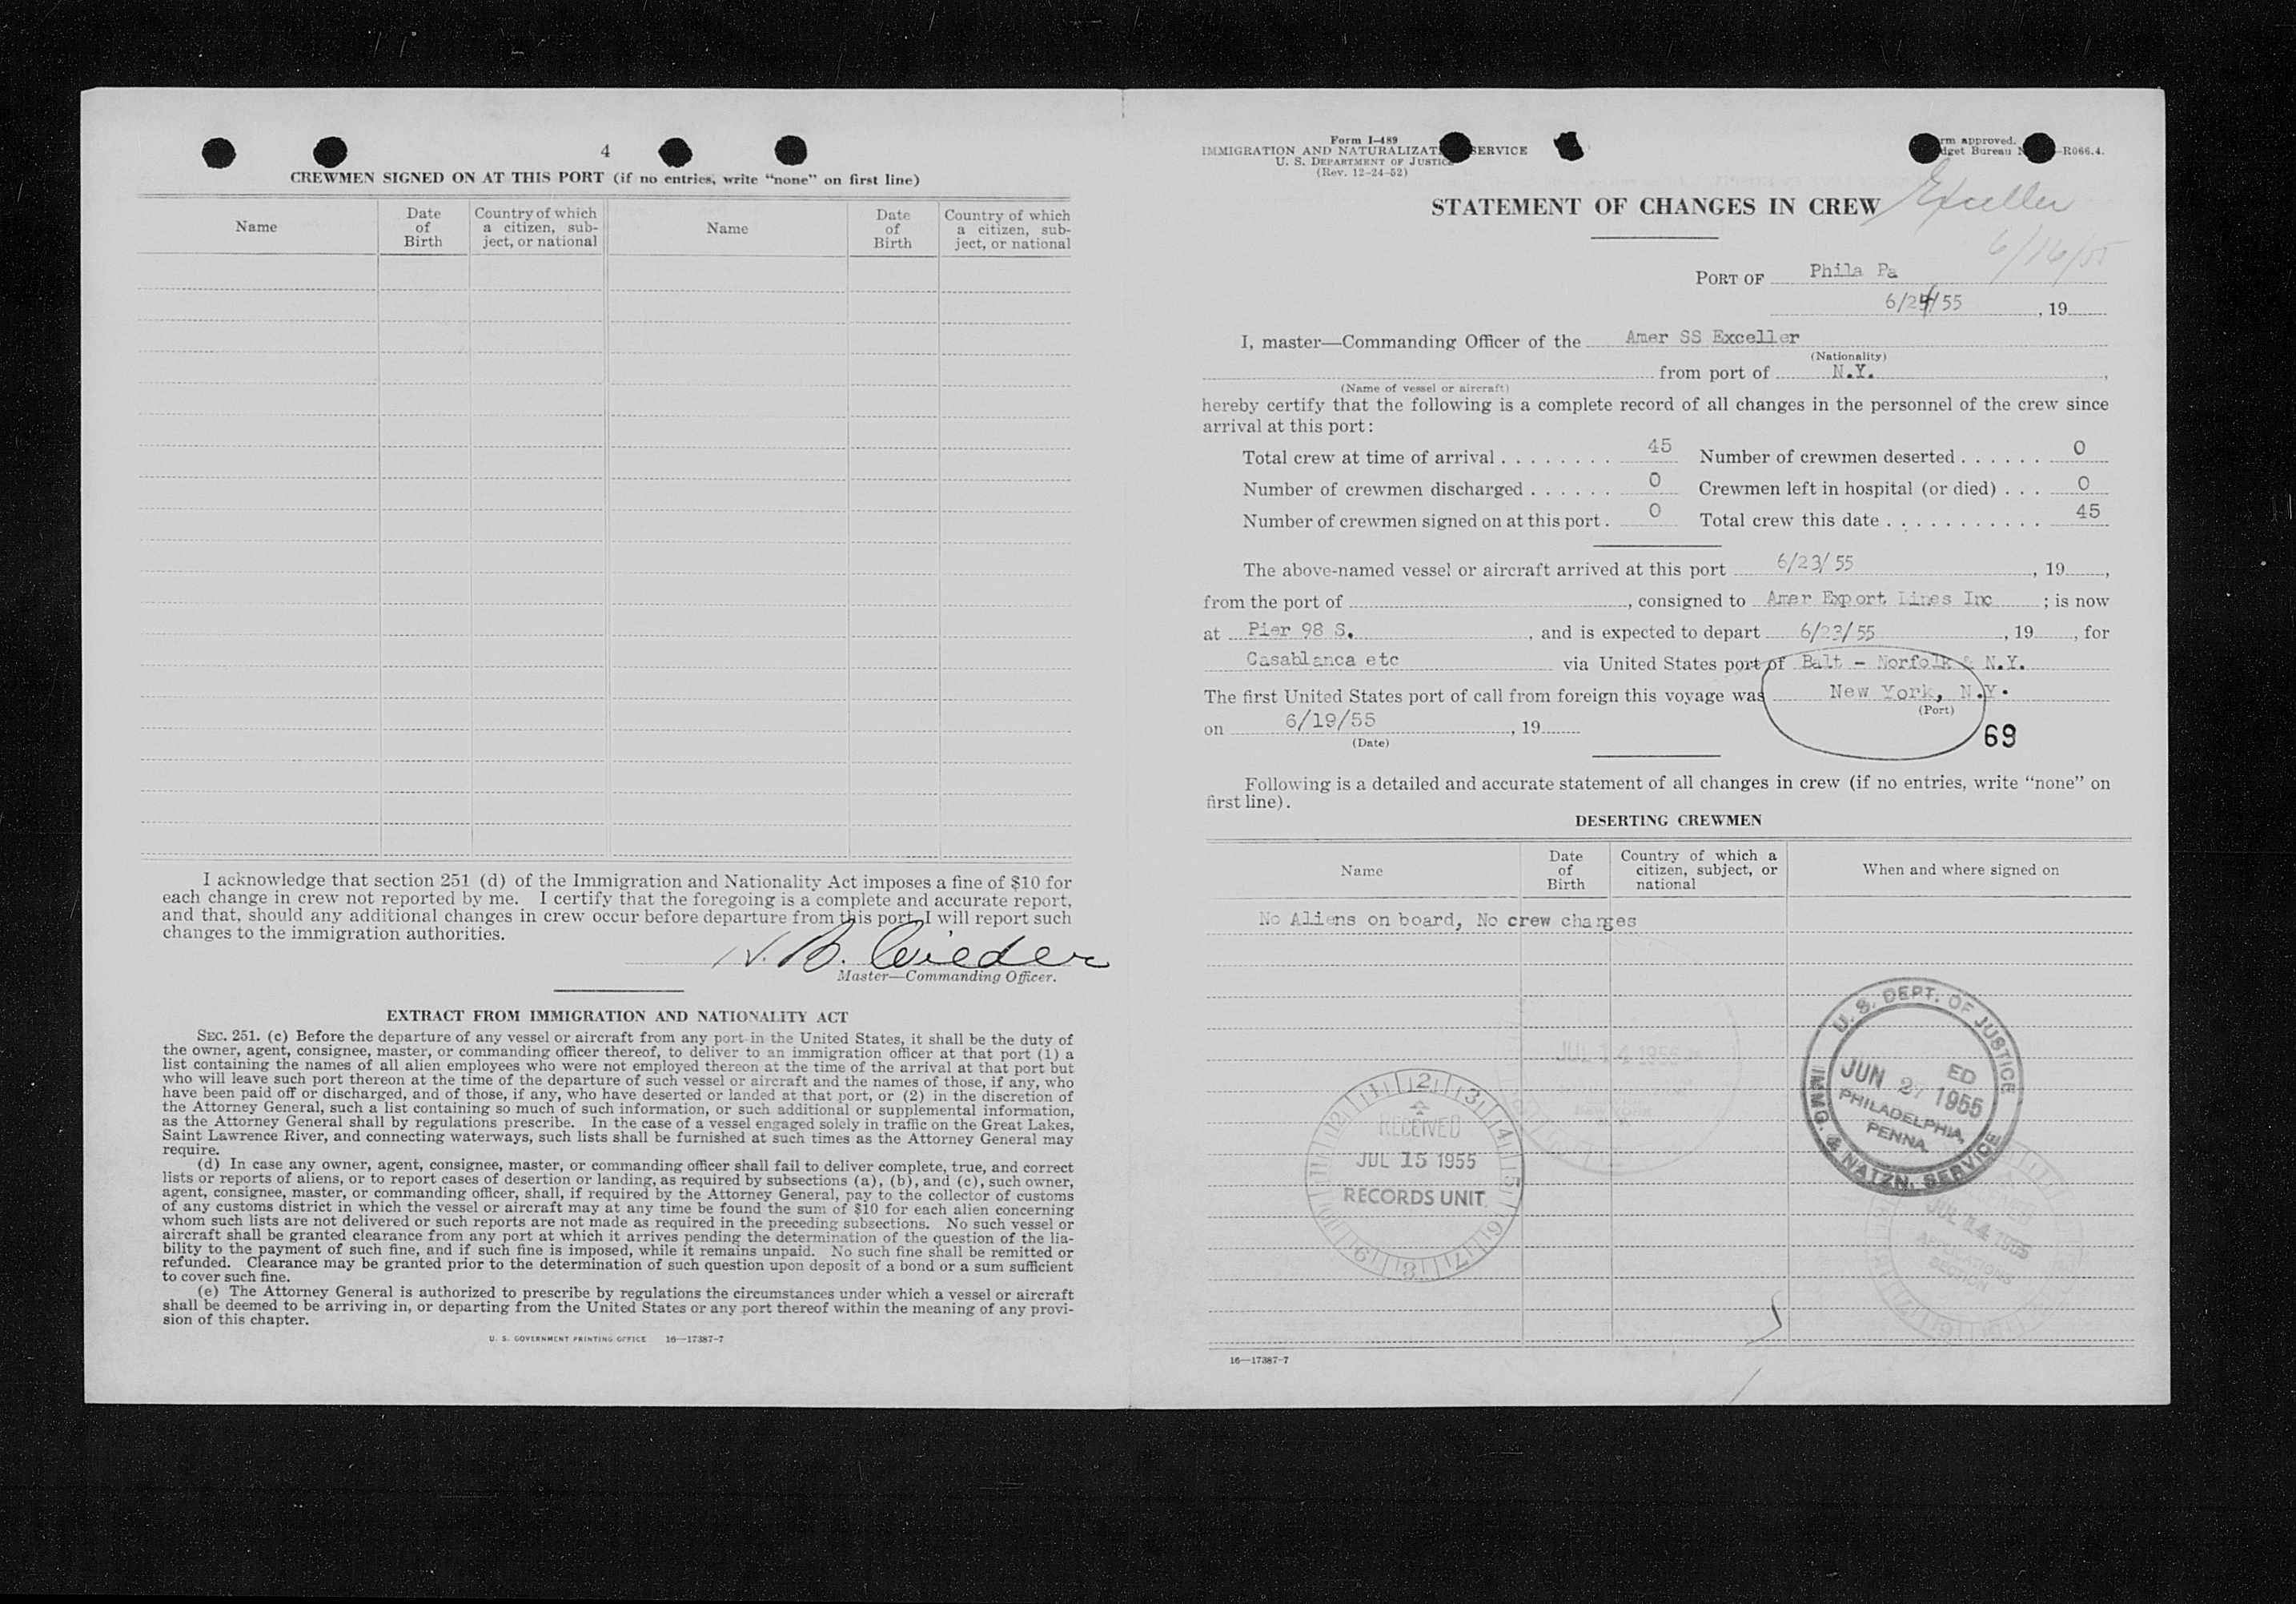 4
CREWMEN SIGNED ON AT THIS PORT (if no entries, write "none" on first line)
Name
Date of Birth
Country of which a citizen, sub-ject, or national
Name
Date of Birth
Country of which a citizen, sub-ject, or national
I acknowledge that section 251 (d) of the Immigration and Nationality Act imposes a fine of $10 for
each change in crew not reported by me. I certify that the foregoing is a complete and accurate report,
and that, should any additional changes in crew occur before departure from this port, I will report such
changes to the immigration authorities.
Master—Commanding Officer.
EXTRACT FROM IMMIGRATION AND NATIONALITY ACT
SEC. 251. (c) Before the departure of any vessel or aircraft from any port in the United States, it shall be the duty of
the owner, agent, consignee, master, or commanding officer thereof, to deliver to an immigration officer at that port (1) a
list containing the names of all alien employees who were not employed thereon at the time of the arrival at that port but
who will leave such port thereon at the time of the departure of such vessel or aircraft and the names of those, if any, who
have been paid off or discharged, and of those, if any, who have deserted or landed at that port, or (2) in the discretion of
the Attorney General, such a list containing so much of such information, or such additional or supplemental information,
as the Attorney General shall by regulations prescribe. In the case of a vessel engaged solely in traffic on the Great Lakes,
Saint Lawrence River, and connecting waterways, such lists shall be furnished at such times as the Attorney General may
require.
(d) In case any owner, agent, consignee, master, or commanding officer shall fail to deliver complete, true, and correct
lists or reports of aliens, or to report cases of desertion or landing, as required by subsections (a), (b), and (c), such owner,
agent, consignee, master, or commanding officer, shall, if required by the Attorney General, pay to the collector of customs
of any customs district in which the vessel or aircraft may at any time be found the sum of $10 for each alien concerning
whom such lists are not delivered or such reports are not made as required in the preceding subsections. No such vessel or
aircraft shall be granted clearance from any port at which it arrives pending the determination of the question of the lia-
bility to the payment of such fine, and if such fine is imposed, while it remains unpaid. No such fine shall be remitted or
refunded. Clearance may be granted prior to the determination of such question upon deposit of a bond or a sum sufficient
to cover such fine.
(e) The Attorney General is authorized to prescribe by regulations the circumstances under which a vessel or aircraft
shall be deemed to be arriving in, or departing from the United States or any port thereof within the meaning of any provi-
sion of this chapter.
U. S. GOVERNMENT PRINTING OFFICE 16—17387-7
Form I-489
IMMIGRATION AND NATURALIZAT SERVICE
U. S. DEPARTMENT OF JUSTICE
(Rev. 12-24-52)
rm approved.
dget Bureau N -R066.4.
STATEMENT OF CHANGES IN CREW
Exceller
6/16/55
PORT OF Phila Pa
6/24/55, 19
I, master—Commanding Officer of the Amer SS Exceller
(Nationality)
from port of N.Y.,
(Name of vessel or aircraft)
hereby certify that the following is a complete record of all changes in the personnel of the crew since
arrival at this port:
Total crew at time of arrival 45 Number of crewmen deserted 0
Number of crewmen discharged 0 Crewmen left in hospital (or died) 0
Number of crewmen signed on at this port. 0 Total crew this date 45
The above-named vessel or aircraft arrived at this port 6/23/55, 19,
from the port of , consigned to Amer Export Lines Inc ; is now
at Pier 98 S. , and is expected to depart 6/23/55, 19, for
Casablanca etc via United States port of Balt - Norfolk & N.Y.
The first United States port of call from foreign this voyage was New York, N.Y.
(Port)
on 6/19/55, 19
(Date)
69
Following is a detailed and accurate statement of all changes in crew (if no entries, write "none" on
first line).
DESERTING CREWMEN
Name
Date of Birth
Country of which a citizen, subject, or national
When and where signed on
No Aliens on board, No crew charges
U. S. DEPT. OF JUSTICE
ED
JUN 27 1955
PHILADELPHIA,
PENNA.
IMMG. & NATZN. SERVICE
JUL 14 1955
RECEIVED
JUL 15 1955
RECORDS UNIT
JUL 14 1955
SECTION
16—17387-7